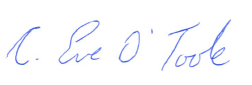 C. Eve O'Toole